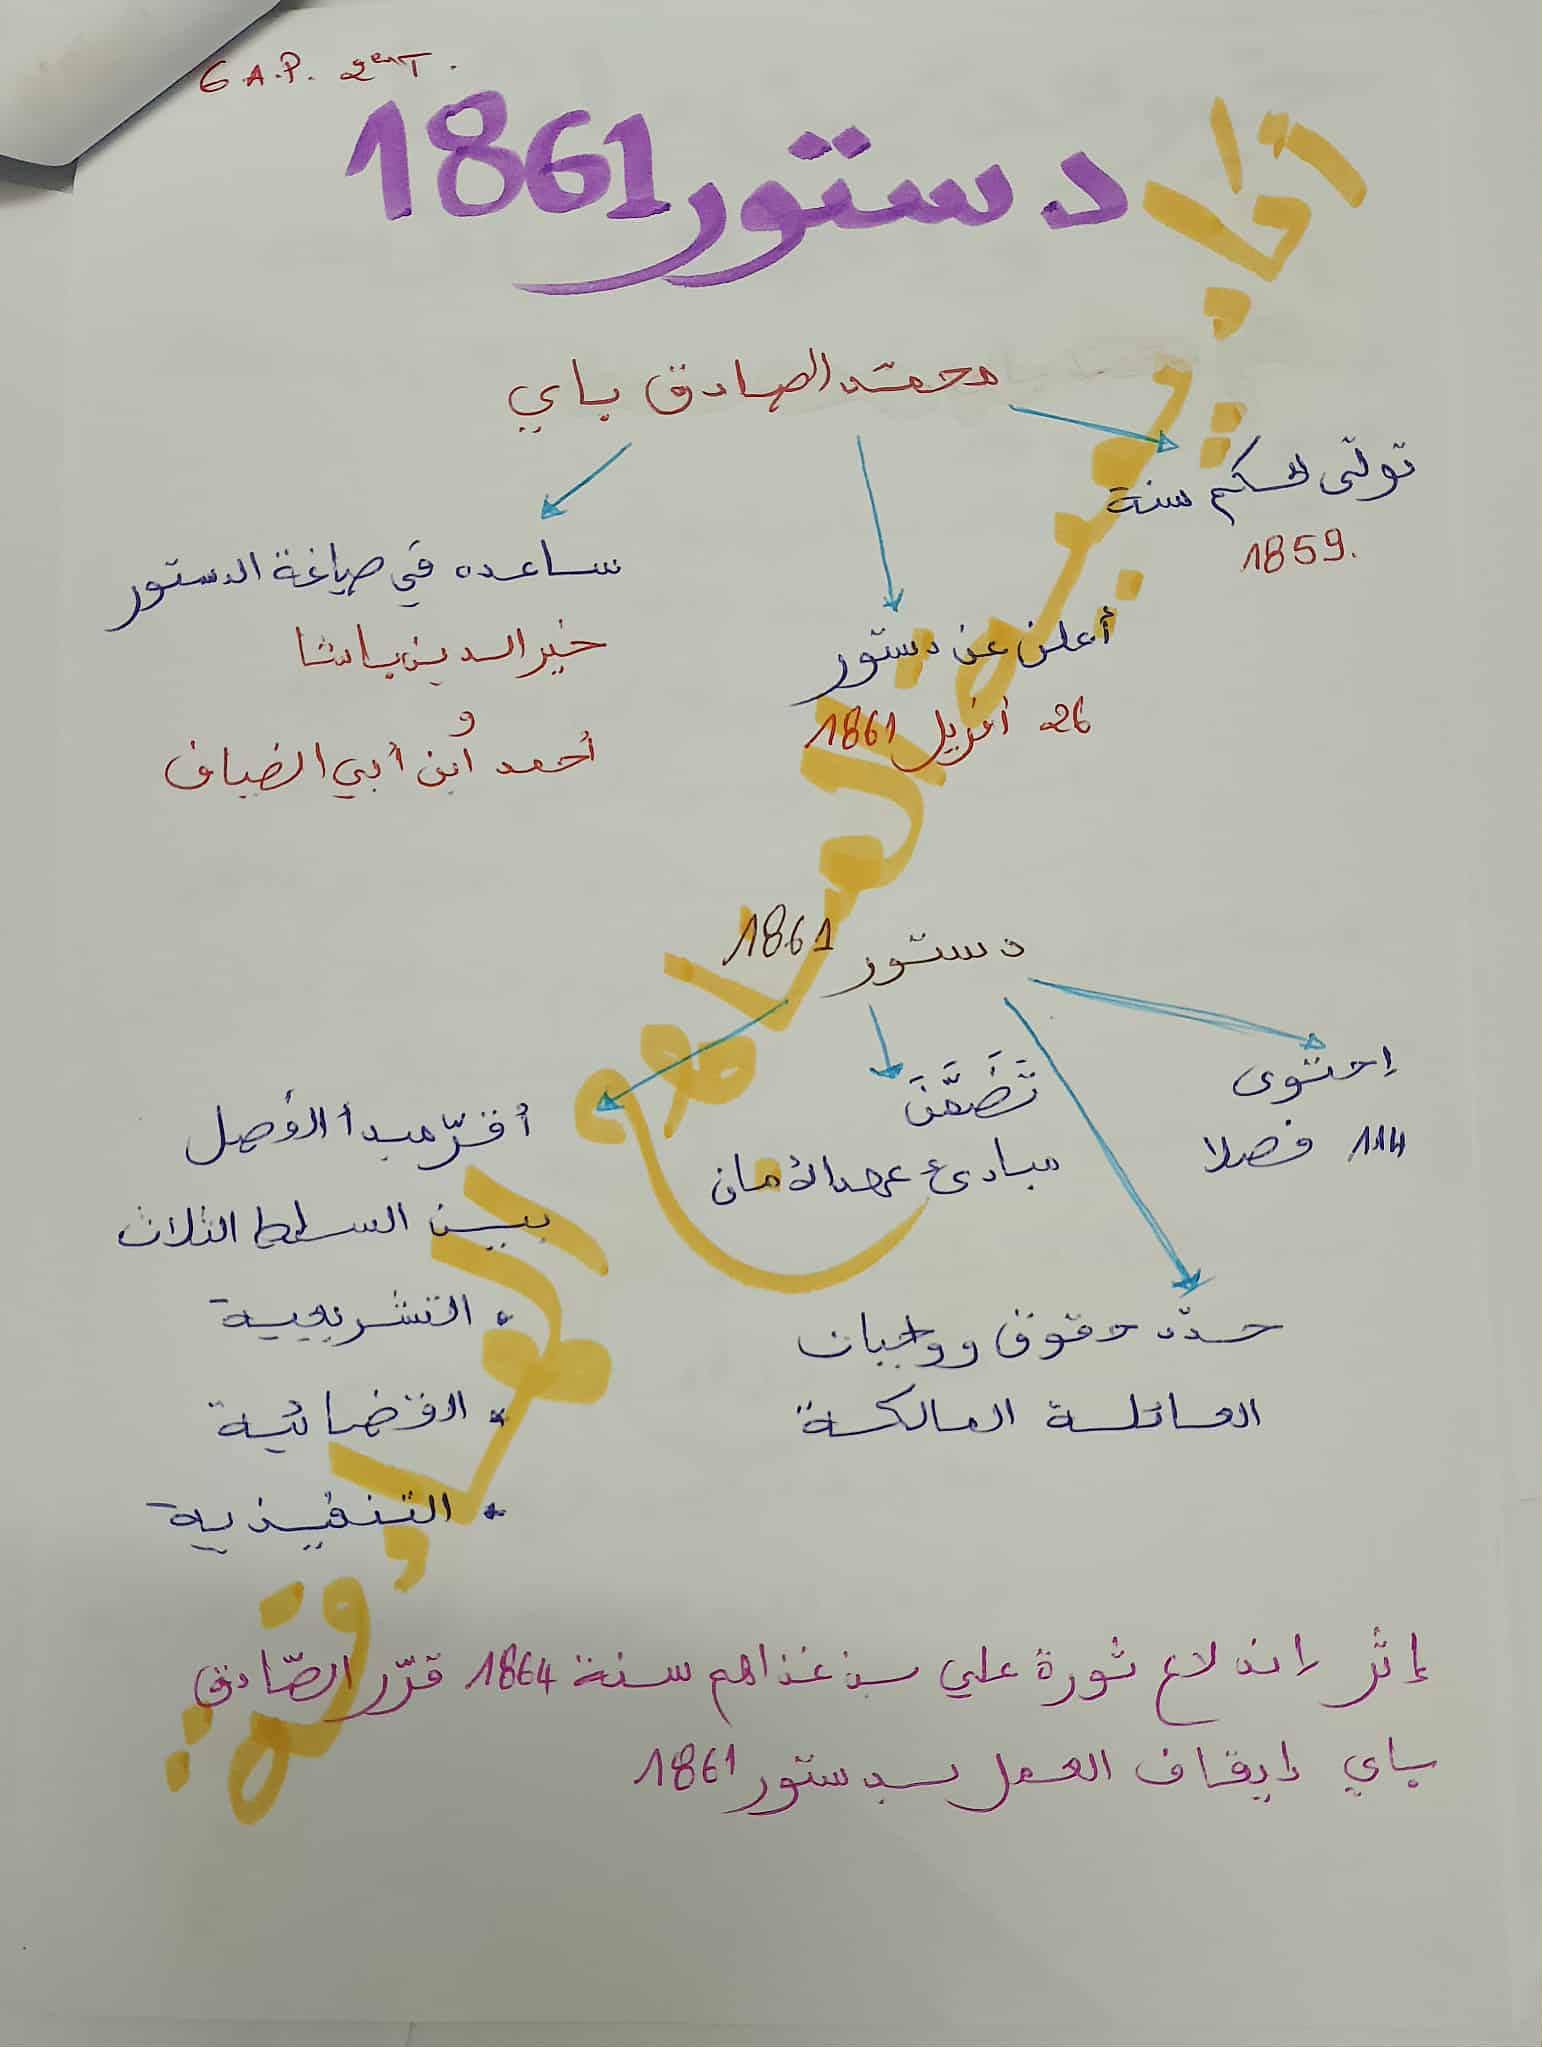 6 A.P. 2ème T.
دستور 1861
محمّد الصادق باي
تولّى الحكم سنة
1859.
أعلن عن دستور
26 أفريل 1861
ساعده في صياغة الدستور
خير الدين باشا
و
أحمد ابن أبي الضياف
دستور 1861
إحتوى
114 فصلا
تَضَمَّنَ
مبادئ عهد الأمان
حدّد حقوق وواجبات
العائلة المالكة
أقرّ مبدأ الفصل
بين السلط الثلاث
• التشريعية
• القضائية
• التنفيذية
إثر إندلاع ثورة علي بن غذاهم سنة 1864 قرّر الصّادق
باي إيقاف العمل بدستور 1861